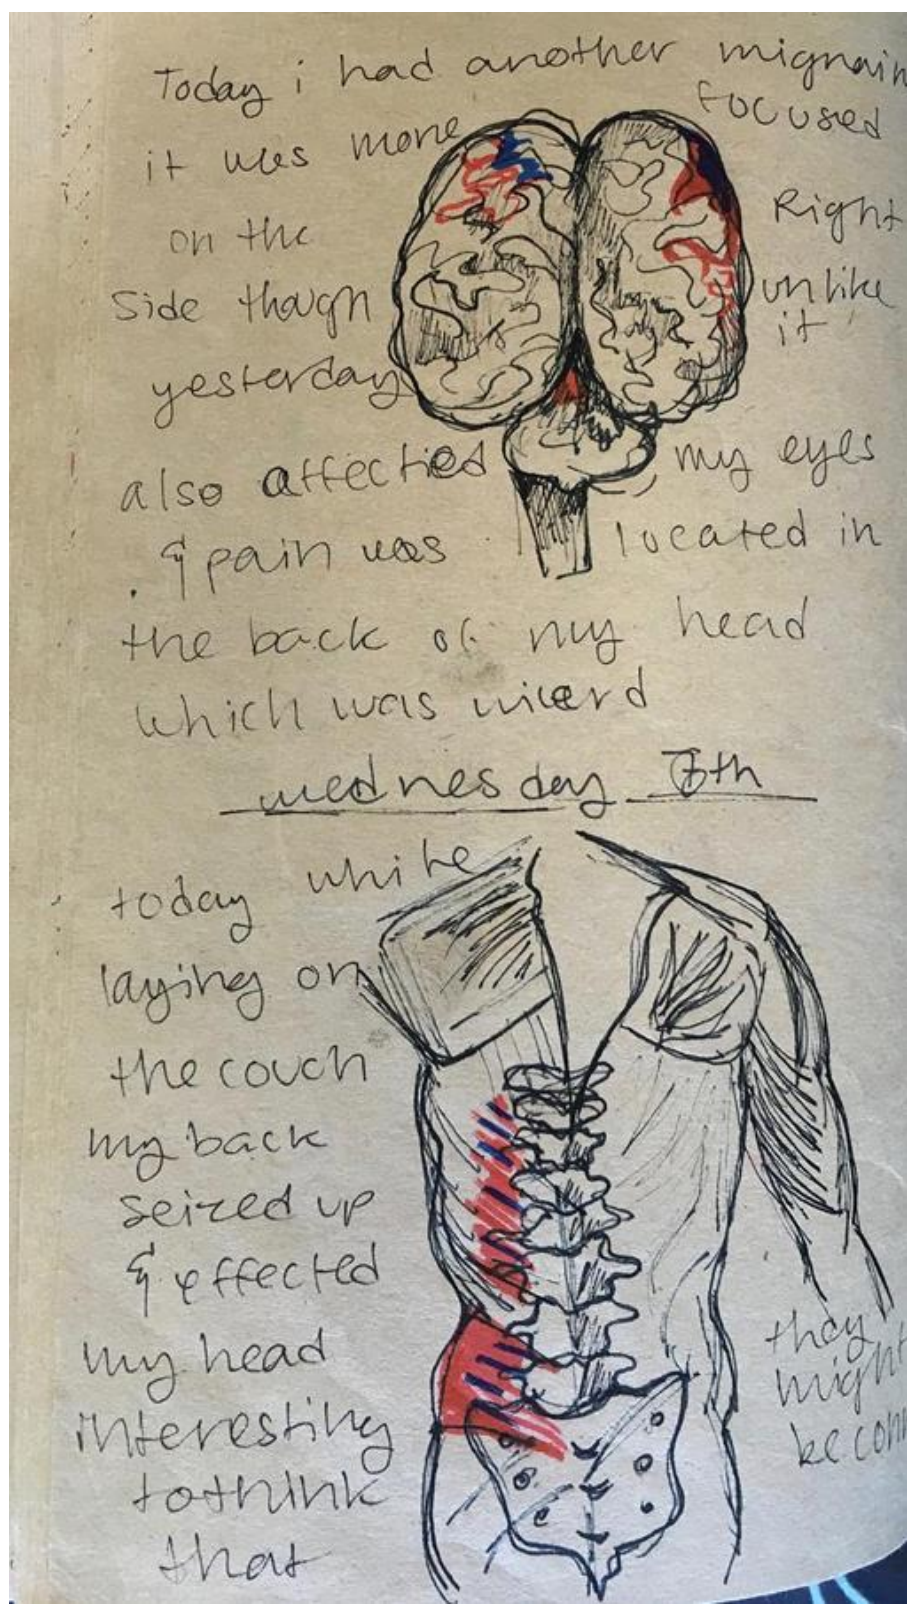 Today i had another mignain
it was more focused
on the Right
side though unlike
yesterday it
also affected my eyes
& pain was located in
the back of my head
which was wierd
wednesday th
today while
laying on
the couch
my back
seized up
& effected
my head
interesting
to think
that
they
might
be conn